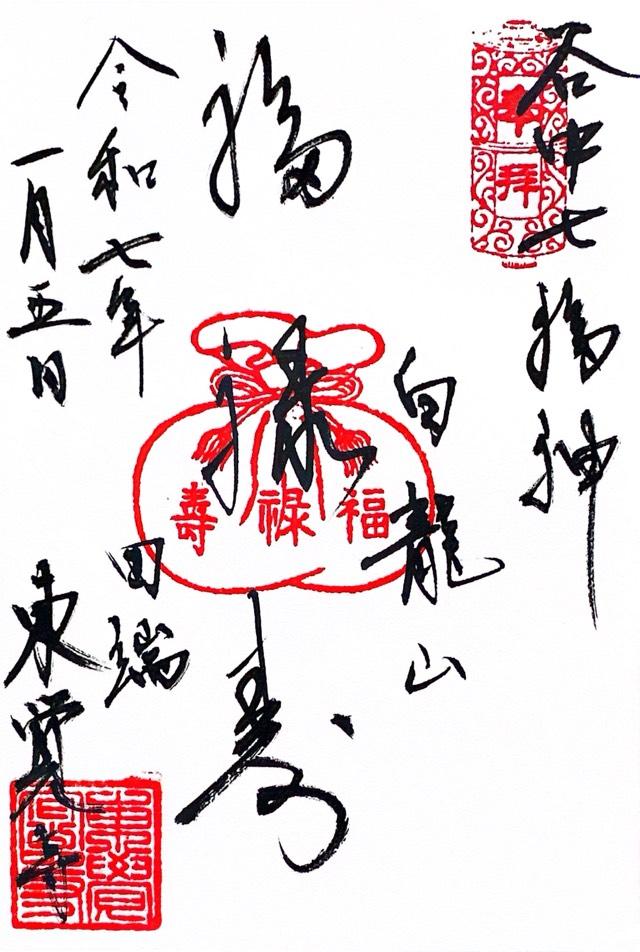 谷中七福神
奉拝
白龍山
福禄寿
福禄壽
令和七年
一月五日
田端
東覚寺
東覺寺